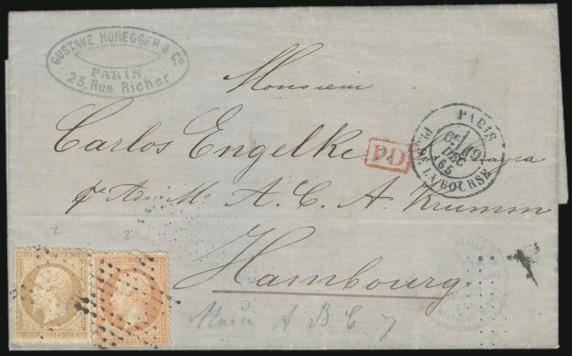 GUSTAVE HONEGGER & Cº
PARIS
23, Rue Richer
Monsieur
Carlos Engelke
PD
PARIS
6E
19
DEC
65
PL. DE LA BOURSE
A. C. A. Krumm
Hambourg
A B C 7